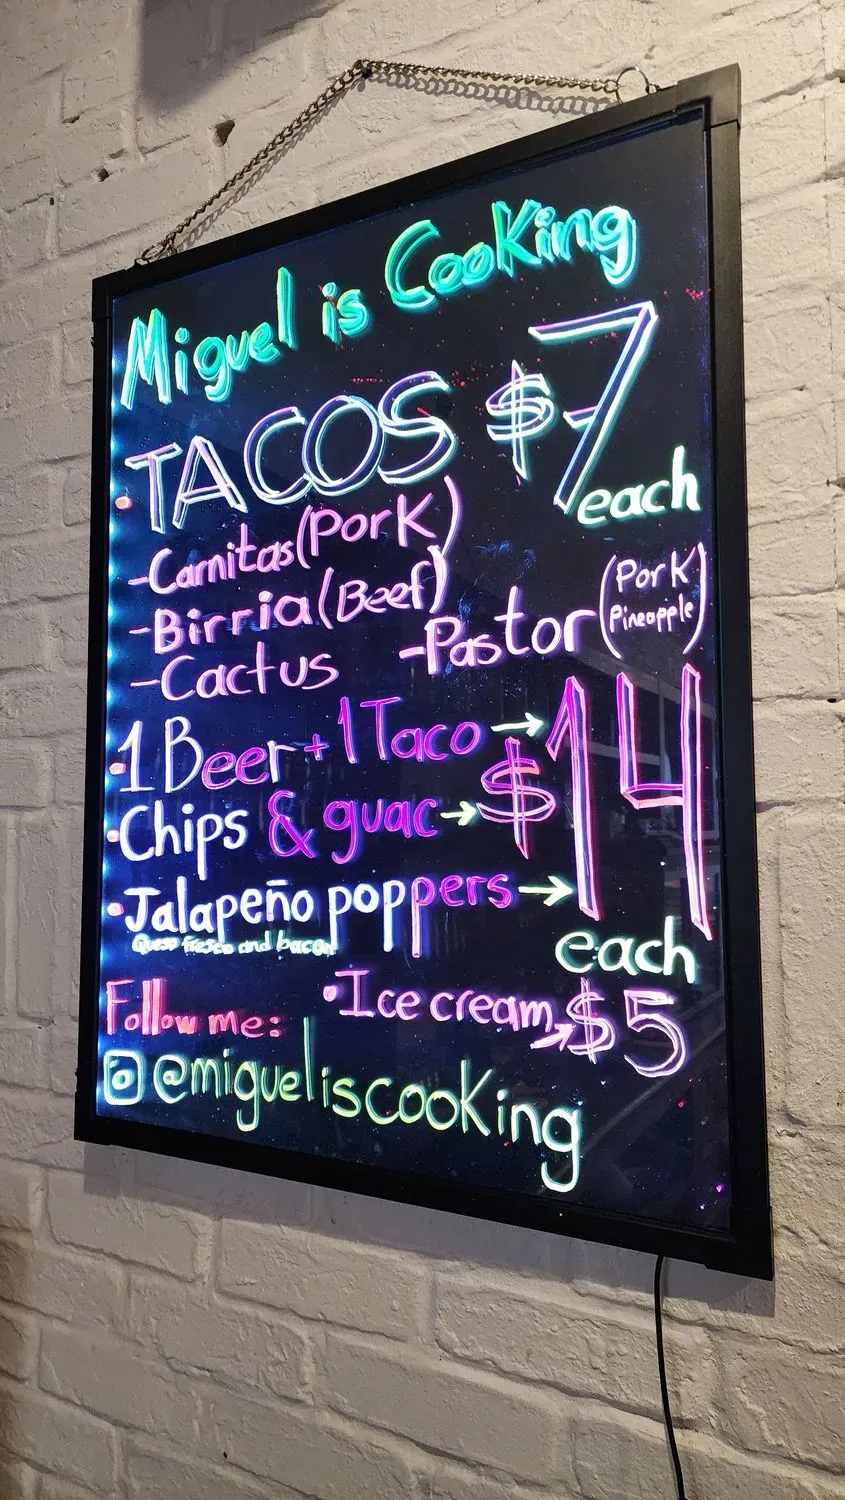 Miguel is Cooking
TACOS $7
each
-Carnitas (Pork)
-Birria (Beef)
-Cactus
-Pastor (Pork
Pineapple)
1 Beer + 1 Taco →
Chips & guac →
Jalapeño poppers →
Queso fresco and bacon
$14
each
Ice cream → $5
Follow me:
@migueliscooking